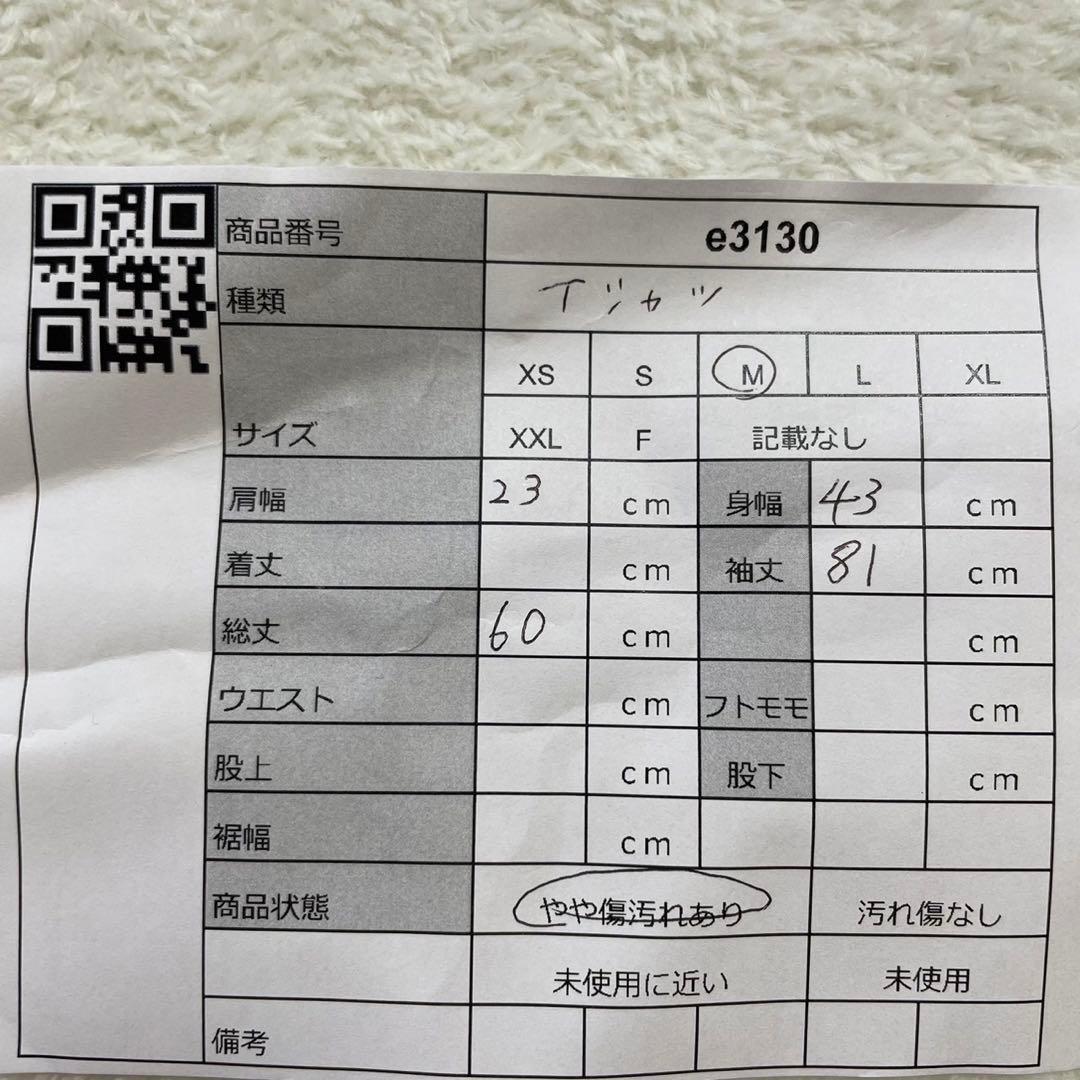 商品番号 e3130
種類 Tシャツ
XS S M L XL
サイズ XXL F 記載なし
肩幅 23 cm 身幅 43 cm
着丈 cm 袖丈 81 cm
総丈 60 cm cm
ウエスト cm フトモモ cm
股上 cm 股下 cm
裾幅 cm
商品状態 やや傷汚れあり 汚れ傷なし
未使用に近い 未使用
備考